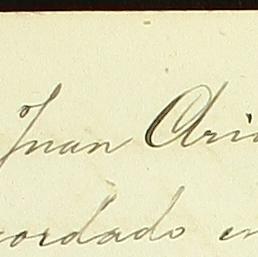 Juan Ari
cordado en